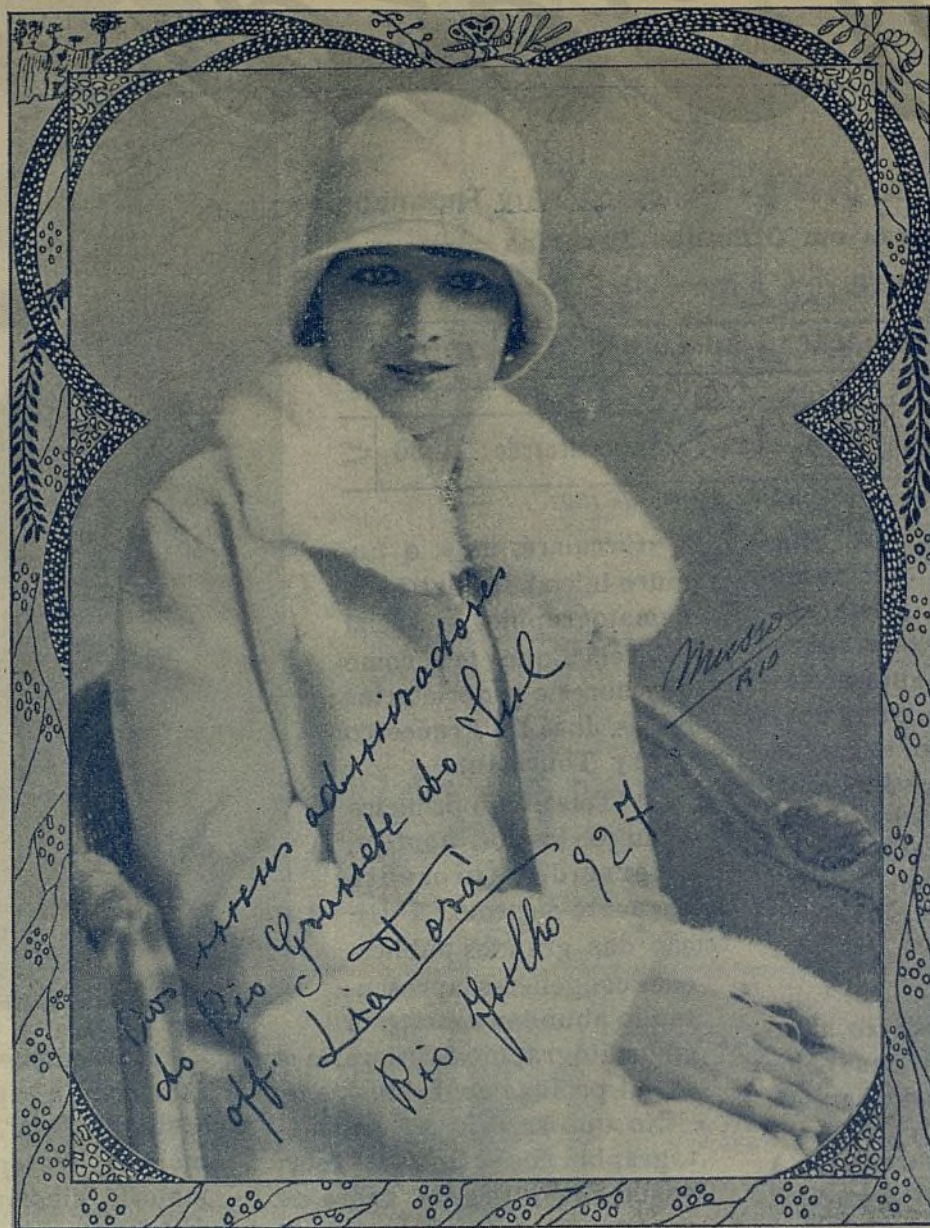 Aos meus admiradores
do Rio Grande do Sul
off. Lia Torá
Rio Julho 927
Musso
RIO